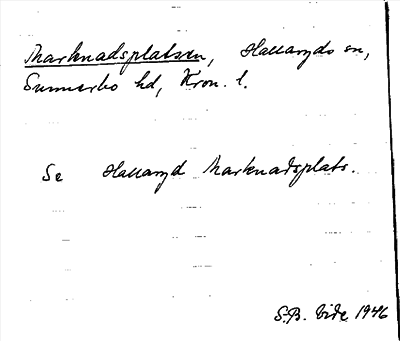 Marknadsplatsen, Hallaryds sn,
Sunnerbo hd, Kron. l.
Se Hallaryd Marknadsplats.
S.B. Vide 1946